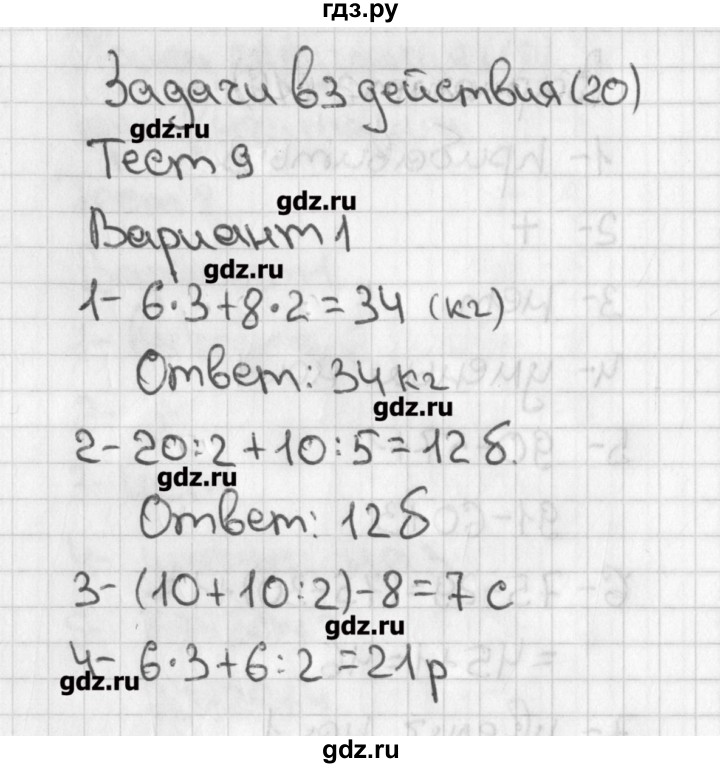 гдз.ру
Задачи в 3 действия (20)
gdz.ru
Тест 9
gdz.ru
Вариант 1
gdz.ru
1- 6·3+8·2=34 (кг)
Ответ: 34 кг
gdz.ru
2- 20:2+10:5=12 б.
gdz.ru
Ответ: 12 б
3- (10+10:2)-8=7 с
gdz.ru
4- 6·3+6:2=21 р
gdz.ru
gdz.ru